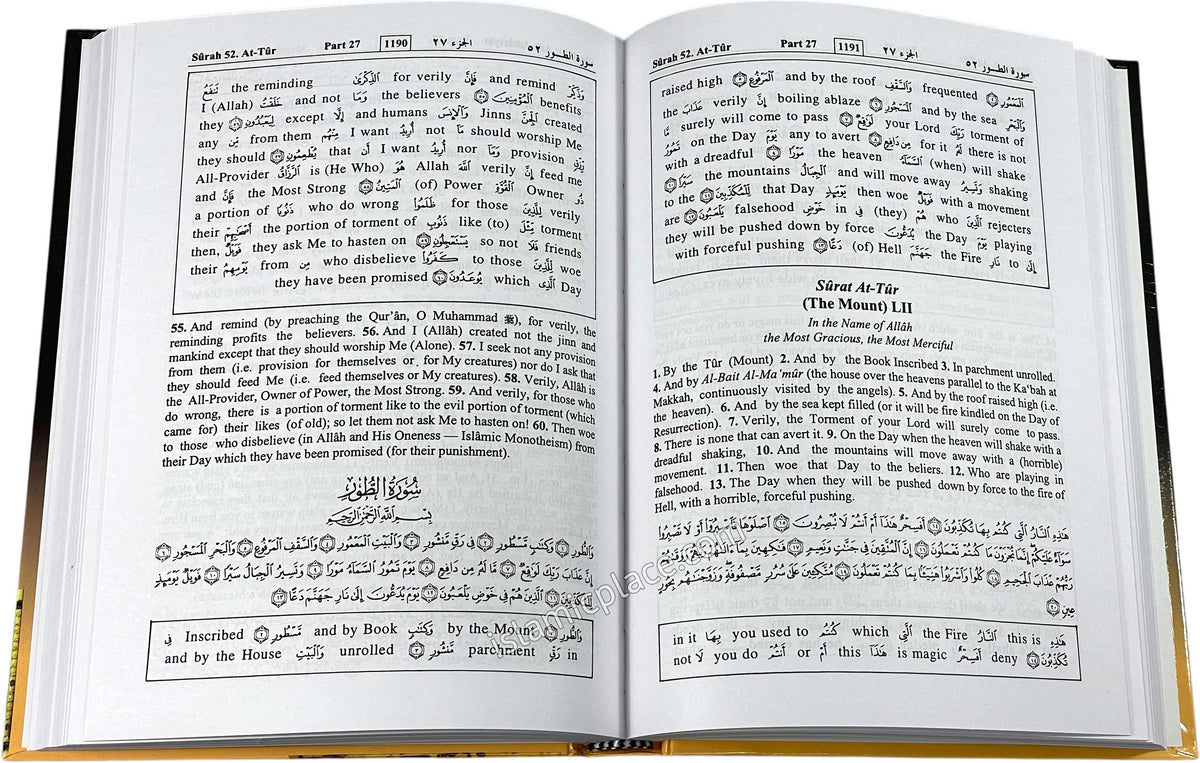 Sûrah 52. At-Tûr Part 27 1190 الجزء ٢٧ سورة الطور ٥٢
وَذَكِّرْ and remind فَإِنَّ for verily الذِّكْرَىٰ the reminding تَنفَعُ
benefits الْمُؤْمِنِينَ ٥٥ the believers وَمَا and not خَلَقْتُ I (Allah)
created الْجِنَّ Jinns وَالْإِنسَ and humans إِلَّا except لِيَعْبُدُونِ ٥٦ they
should worship Me مَا not أُرِيدُ I want مِنْهُم from them مِّن any
رِّزْقٍ provision وَمَا nor أُرِيدُ I want أَن that يُطْعِمُونِ ٥٧ they should
feed me إِنَّ verily اللَّهَ Allah هُوَ is (He Who) الرَّزَّاقُ All-Provider
ذُو Owner الْقُوَّةِ (of) Power الْمَتِينُ ٥٨ the Most Strong فَإِنَّ and
verily لِلَّذِينَ for those ظَلَمُوا who do wrong ذَنُوبًا a portion of
torment مِّثْلَ like (to) ذَنُوبِ the portion of torment of أَصْحَابِهِمْ their
friends فَلَا so not يَسْتَعْجِلُونِ ٥٩ they ask Me to hasten on فَوَيْلٌ then,
woe لِّلَّذِينَ to those كَفَرُوا who disbelieve مِن from يَوْمِهِمُ their
Day الَّذِي which يُوعَدُونَ ٦٠ they have been promised
55. And remind (by preaching the Qur'ân, O Muhammad ﷺ), for verily, the
reminding profits the believers. 56. And I (Allâh) created not the jinn and
mankind except that they should worship Me (Alone). 57. I seek not any provision
from them (i.e. provision for themselves or for My creatures) nor do I ask that
they should feed Me (i.e. feed themselves or My creatures). 58. Verily, Allâh is
the All-Provider, Owner of Power, the Most Strong. 59. And verily, for those who
do wrong, there is a portion of torment like to the evil portion of torment (which
came for) their likes (of old); so let them not ask Me to hasten on! 60. Then woe
to those who disbelieve (in Allâh and His Oneness — Islâmic Monotheism) from
their Day which they have been promised (for their punishment).
سُورَةُ الطُّورِ
بِسْمِ اللَّهِ الرَّحْمَٰنِ الرَّحِيمِ
وَالطُّورِ ١ وَكِتَابٍ مَّسْطُورٍ ٢ فِي رَقٍّ مَّنشُورٍ ٣ وَالْبَيْتِ الْمَعْمُورِ ٤ وَالسَّقْفِ الْمَرْفُوعِ ٥ وَالْبَحْرِ الْمَسْجُورِ ٦
إِنَّ عَذَابَ رَبِّكَ لَوَاقِعٌ ٧ مَّا لَهُ مِن دَافِعٍ ٨ يَوْمَ تَمُورُ السَّمَاءُ مَوْرًا ٩ وَتَسِيرُ الْجِبَالُ سَيْرًا ١٠ فَوَيْلٌ يَوْمَئِذٍ
لِّلْمُكَذِّبِينَ ١١ الَّذِينَ هُمْ فِي خَوْضٍ يَلْعَبُونَ ١٢ يَوْمَ يُدَعُّونَ إِلَىٰ نَارِ جَهَنَّمَ دَعًّا ١٣
وَالطُّورِ ١ by the Mount وَكِتَابٍ and by Book مَّسْطُورٍ ٢ Inscribed فِي
in رَقٍّ parchment مَّنشُورٍ ٣ unrolled وَالْبَيْتِ and by the House
Sûrah 52. At-Tûr Part 27 1191 الجزء ٢٧ سورة الطور ٥٢
الْمَعْمُورِ ٤ frequented وَالسَّقْفِ and by the roof الْمَرْفُوعِ ٥ raised high
وَالْبَحْرِ and by the sea الْمَسْجُورِ ٦ boiling ablaze إِنَّ verily عَذَابَ the
torment of رَبِّكَ your Lord لَوَاقِعٌ ٧ surely will come to pass مَّا
there is not لَهُ for it مِن دَافِعٍ ٨ any to avert يَوْمَ on the Day تَمُورُ
(when) will shake السَّمَاءُ the heaven مَوْرًا ٩ with a dreadful
shaking وَتَسِيرُ and will move away الْجِبَالُ the mountains سَيْرًا ١٠
with a movement فَوَيْلٌ then woe يَوْمَئِذٍ that Day لِّلْمُكَذِّبِينَ ١١ to the
rejecters الَّذِينَ who هُمْ (they) فِي in خَوْضٍ falsehood يَلْعَبُونَ ١٢ are
playing يَوْمَ the Day يُدَعُّونَ they will be pushed down by force
إِلَىٰ to نَارِ the Fire جَهَنَّمَ (of) Hell دَعًّا ١٣ with forceful pushing
Sûrat At-Tûr
(The Mount) LII
In the Name of Allâh
the Most Gracious, the Most Merciful
1. By the Tûr (Mount) 2. And by the Book Inscribed 3. In parchment unrolled.
4. And by Al-Bait Al-Ma'mûr (the house over the heavens parallel to the Ka'bah at
Makkah, continuously visited by the angels). 5. And by the roof raised high (i.e.
the heaven). 6. And by the sea kept filled (or it will be fire kindled on the Day of
Resurrection). 7. Verily, the Torment of your Lord will surely come to pass.
8. There is none that can avert it. 9. On the Day when the heaven will shake with a
dreadful shaking, 10. And the mountains will move away with a (horrible)
movement. 11. Then woe that Day to the beliers. 12. Who are playing in
falsehood. 13. The Day when they will be pushed down by force to the fire of
Hell, with a horrible, forceful pushing.
هَٰذِهِ النَّارُ الَّتِي كُنتُم بِهَا تُكَذِّبُونَ ١٤ أَفَسِحْرٌ هَٰذَا أَمْ أَنتُمْ لَا تُبْصِرُونَ ١٥ اصْلَوْهَا فَاصْبِرُوا أَوْ لَا تَصْبِرُوا
سَوَاءٌ عَلَيْكُمْ إِنَّمَا تُجْزَوْنَ مَا كُنتُمْ تَعْمَلُونَ ١٦ إِنَّ الْمُتَّقِينَ فِي جَنَّاتٍ وَنَعِيمٍ ١٧ فَاكِهِينَ بِمَا آتَاهُمْ رَبُّهُمْ وَوَقَاهُمْ
رَبُّهُمْ عَذَابَ الْجَحِيمِ ١٨ كُلُوا وَاشْرَبُوا هَنِيئًا بِمَا كُنتُمْ تَعْمَلُونَ ١٩ مُتَّكِئِينَ عَلَىٰ سُرُرٍ مَّصْفُوفَةٍ وَزَوَّجْنَاهُم بِحُورٍ
عِينٍ ٢٠
هَٰذِهِ this is النَّارُ the Fire الَّتِي which كُنتُم you used to بِهَا in it
تُكَذِّبُونَ ١٤ deny أَفَسِحْرٌ is magic هَٰذَا this أَمْ or أَنتُمْ you do لَا not
islamicplace.com